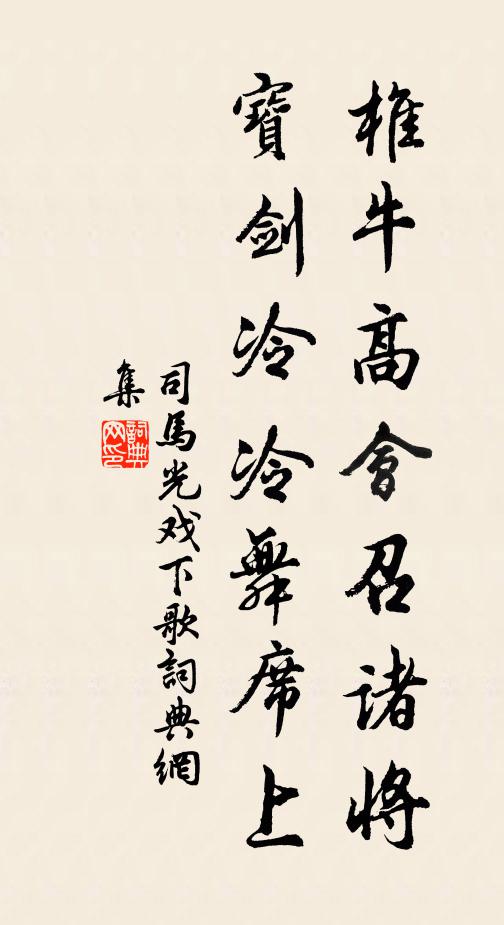 椎牛高會召诸將
寶劍冷冷舞席上
司馬光戏下歌詞典網
集
詞典網印